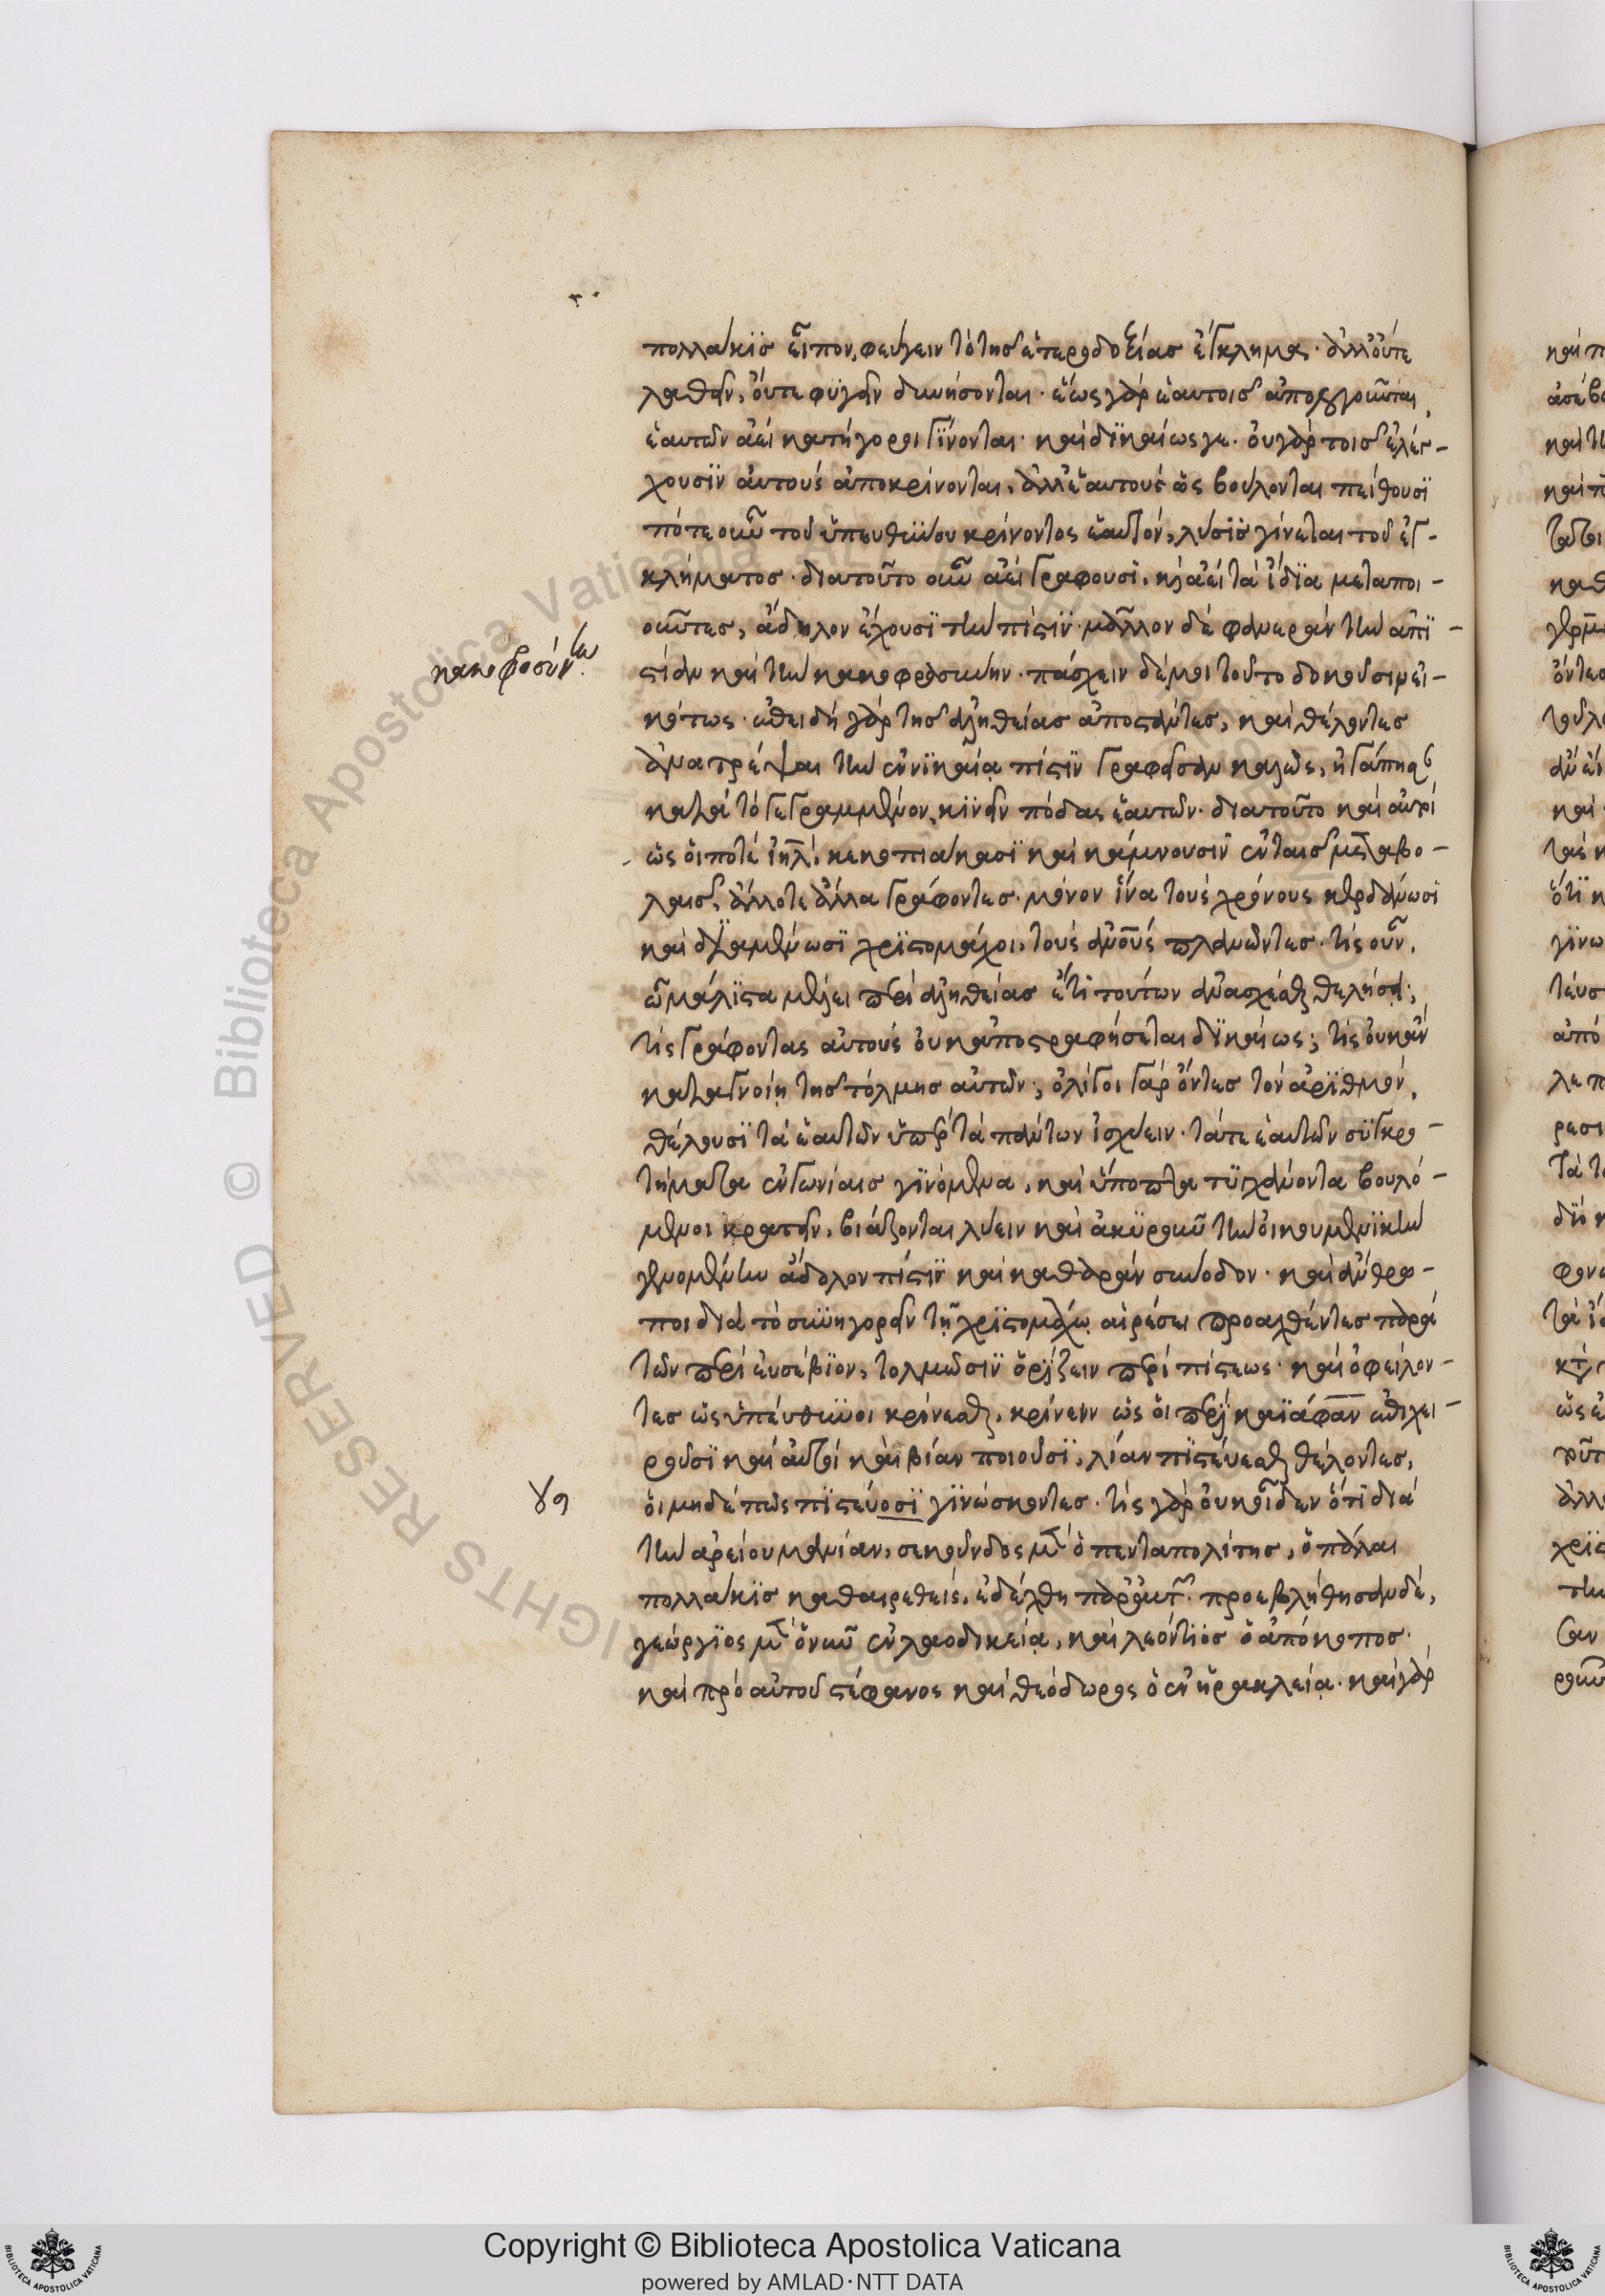 πολλάκϊς εἶπον, φεύγειν τὸ τῆς ἑτεροδοξίας ἔγκλημα· ἀλλ' οὔτε
λαθεῖν, οὔτε φϋγεῖν δυνήσονται· ἕως γὰρ ἑαυτοῖς ἀπολογοῦνται,
ἑαυτῶν ἀεὶ κατήγοροι γΐνονται· καὶ δϊκαίως γε· οὐ γὰρ τοῖς ἐλέγ-
χουσϊν αὐτοὺς ἀποκρίνονται, ἀλλ' ἑαυτοὺς ὡς βούλονται πείθουσϊ
πότε οὖν τοῦ ὑπευθύνου κρίνοντος ἑαυτόν, λύσϊς γίνεται τοῦ ἐγ-
κλήματος· διὰ τοῦτο οὖν ἀεὶ γράφουσϊ, κ ἀεὶ τὰ ἴδϊα μεταποι-
οῦντες, ἄδηλον ἔχουσϊ τὴν πίστϊν· μᾶλλον δὲ φανερὰν τὴν ἀπϊ-
κακοφροσύνην.
στίαν καὶ τὴν κακοφροσύνην· πάσχειν δέ μοι τοῦτο δοκοῦσιν εἰ-
κότως· ἐπειδὴ γὰρ τῆς ἀληθείας ἀποστάντες, καὶ θέλοντες
ἀνατρέψαι τὴν ἐν νϊκαίᾳ πίστϊν γραφεῖσαν καλῶς, ἠγάπησ
κατὰ τὸ γεγραμμένον, κϊνεῖν πόδας ἑαυτῶν· διὰ τοῦτο καὶ αὐτοὶ
ὡς οἱ ποτὲ ἰηλ, κεκοπιάκασϊ καὶ κάμνουσϊν ἐν ταῖς μεταβο-
λαῖς, ἄλλοτε ἄλλα γράφοντες· μόνον ἵνα τοὺς χρόνους κερδάνωσϊ
καὶ διαμένωσϊ χρϊστομάχοι, τοὺς ἀνοὺς πλανῶντες· τίς οὖν,
ᾧ μάλϊστα μέλει περὶ ἀληθείας ἔτϊ τούτων ἀνασχέσθαι θελήσει;
τίς γράφοντας αὐτοὺς οὐκ ἀποστραφήσεται δϊκαίως; τίς οὐκ ἂν
καταγνοίη τῆς τόλμης αὐτῶν; ὀλίγοι γὰρ ὄντες τὸν ἀρϊθμόν,
θέλουσϊ τὰ ἑαυτῶν ὑπὲρ τὰ πάντων ἰσχύειν· τά τε ἑαυτῶν σϋγκρο-
τήματα ἐν γωνίαις γϊνόμενα, καὶ ὕποπτα τϋγχάνοντα βουλό-
μενοι κρατεῖν, βιάζονται λύειν καὶ ἀκϋροῦν τὴν οἰκουμενϊκὴν
γενομένην ἄδολον πίστϊν καὶ καθαρὰν σύνοδον· καὶ ἄνθρω-
ποι διὰ τὸ συνηγορεῖν τῇ χρϊστομάχῳ αἱρέσει προαχθέντες παρὰ
τῶν περὶ εὐσέβϊον, τολμῶσϊν ὁρίζειν περὶ πίστεως· καὶ ὀφείλον-
τες ὡς ὑπεύθυνοι κρίνεσθαι, κρίνειν ὡς οἱ περὶ καϊάφαν ἐπιχει-
ροῦσϊ καὶ αὐτοὶ καὶ βίαν ποιοῦσϊ, λίαν πϊστεύεσθαι θέλοντες,
οἱ μηδέπως πϊστεύοσϊ γϊνώσκοντες· τίς γὰρ οὐκ οἶδεν ὅτϊ διὰ
τὴν ἀρείου μανίαν, σεκοῦνδος μ ὁ πενταπολίτης, ὁ πάλαι
πολλάκϊς καθαιρεθείς, ἐδέχθη παρ' αὐτ· προεβλήθησαν δὲ,
γεώργϊος μ ὁ νῦν ἐν λαοδικείᾳ, καὶ λεόντϊος ὁ ἀπόκοπος·
καὶ πρὸ αὐτοῦ στέφανος καὶ θεόδωρος ὁ ἐν ἡρακλείᾳ· καὶ γὰρ
Copyright © Biblioteca Apostolica Vaticana
powered by AMLAD·NTT DATA